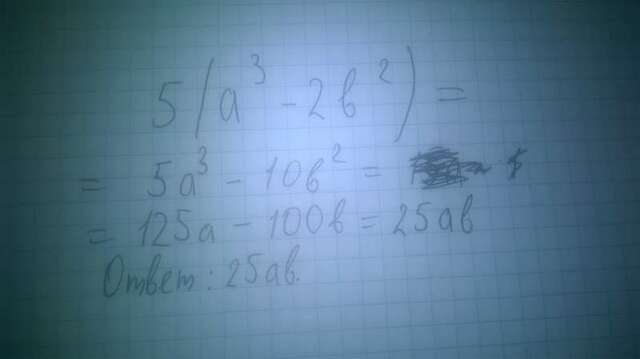 5(a³ - 2b²) =
= 5a³ - 10b² =
= 125a - 100b = 25ab
Ответ: 25ab.